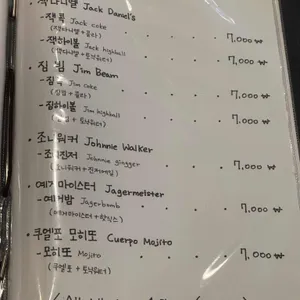 · 잭다니엘 Jack Daniel's
- 잭콕 Jack coke · · · 7,000 ₩
(잭다니엘 + 콜라)
- 잭하이볼 Jack highball · · · 7,000 ₩
(잭다니엘 + 토닉워터)
· 짐 빔 Jim Beam
- 짐콕 Jim coke · · · 7,000 ₩
(짐빔 + 콜라)
- 짐하이볼 Jim highball · · · 7,000 ₩
(짐빔 + 토닉워터)
· 조니워커 Johnnie Walker
- 조니진저 Johnnie ginger · · · 7,000 ₩
(조니워커 + 진저에일)
· 예거마이스터 Jagermeister
- 예거밤 Jagerbomb · · · 7,000 ₩
(예거마이스터 + 핫식스)
· 쿠엘포 모히또 Cuerpo Mojito
- 모히또 Mojito · · · 7,000 ₩
(쿠엘포 + 토닉워터)